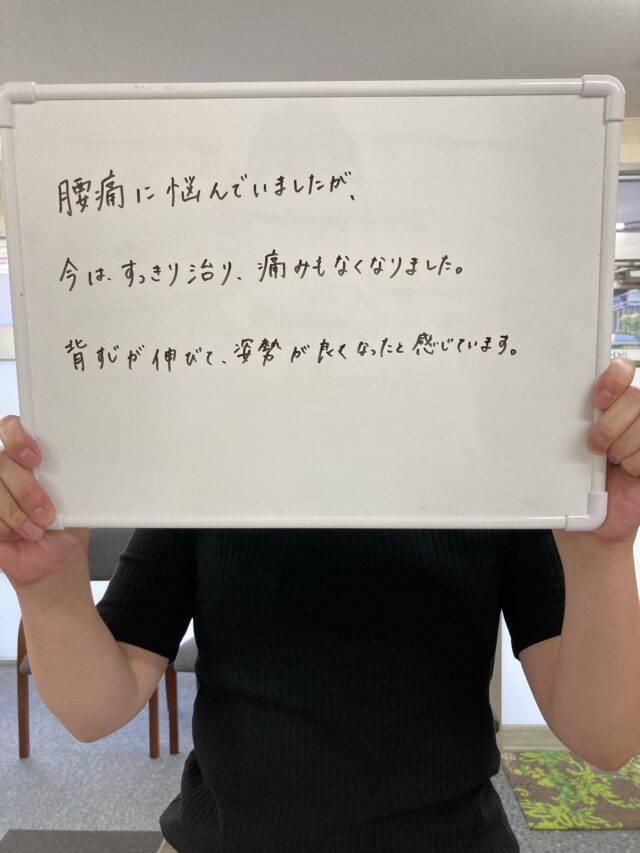 腰痛に悩んでいましたが、
今は、すっきり治り、痛みもなくなりました。
背すじが伸びて、姿勢が良くなったと感じています。